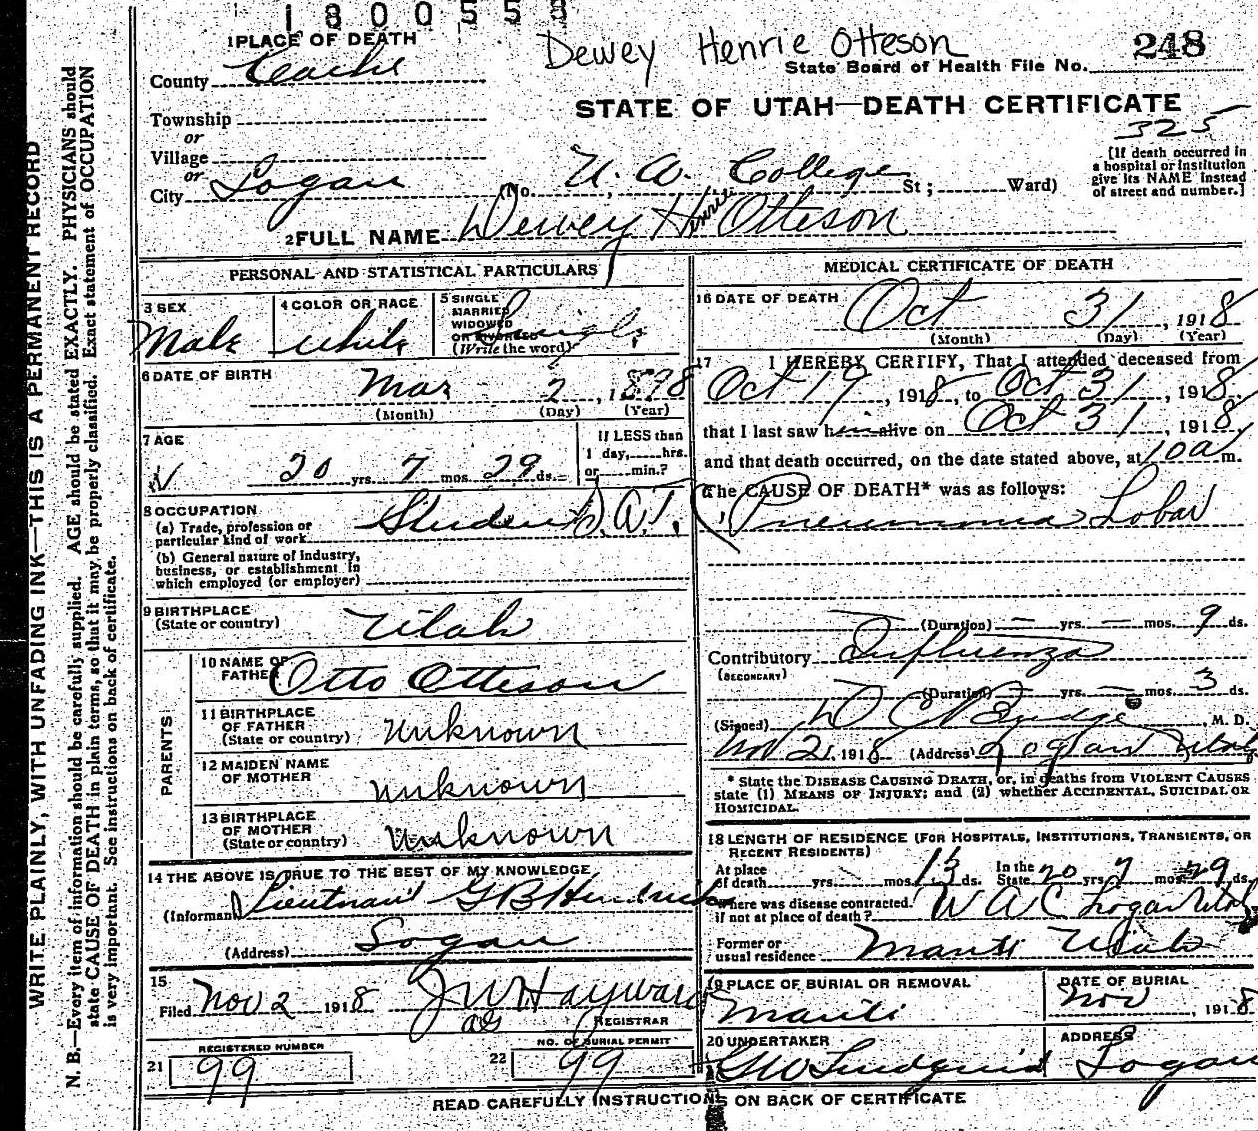 1800558
1 PLACE OF DEATH
Dewey Henrie Otteson
248
County Cache
State Board of Health File No.
STATE OF UTAH—DEATH CERTIFICATE
Township
or
325
Village
or
[If death occurred in a hospital or institution give its NAME instead of street and number.]
City Logan (No. U. A. College St; Ward)
2 FULL NAME Dewey Henrie Otteson
PERSONAL AND STATISTICAL PARTICULARS
3 SEX Male
4 COLOR OR RACE White
5 SINGLE MARRIED WIDOWED OR DIVORCED (Write the word) Single
6 DATE OF BIRTH Mar 2, 1898
(Month) (Day) (Year)
7 AGE
20 yrs. 7 mos. 29 ds.
If LESS than 1 day, hrs. or min.?
8 OCCUPATION
(a) Trade, profession or particular kind of work Student
(b) General nature of industry, business, or establishment in which employed (or employer)
9 BIRTHPLACE (State or country) Utah
PARENTS
10 NAME OF FATHER Otto Otteson
11 BIRTHPLACE OF FATHER (State or country) Unknown
12 MAIDEN NAME OF MOTHER Unknown
13 BIRTHPLACE OF MOTHER (State or country) Unknown
14 THE ABOVE IS TRUE TO THE BEST OF MY KNOWLEDGE
(Informant) Lieutnant G B
(Address) Logan
15
Filed Nov 2 1918 J W Hayward
REGISTRAR
21 REGISTERED NUMBER 99
22 NO. OF BURIAL PERMIT 99
MEDICAL CERTIFICATE OF DEATH
16 DATE OF DEATH Oct 31, 1918
(Month) (Day) (Year)
17 I HEREBY CERTIFY, That I attended deceased from
Oct 19, 1918, to Oct 31, 1918
that I last saw him alive on Oct 31, 1918
and that death occurred, on the date stated above, at 10 a m.
The CAUSE OF DEATH* was as follows:
Pneumonia Lobar
(Duration) — yrs. — mos. 9 ds.
Contributory (SECONDARY) Influenza
(Duration) yrs. — mos. 3 ds.
(Signed) D C Budge, M. D.
Nov 2, 1918 (Address) Logan Utah
* State the DISEASE CAUSING DEATH, or, in deaths from VIOLENT CAUSES
state (1) MEANS OF INJURY; and (2) whether ACCIDENTAL, SUICIDAL OR
HOMICIDAL.
18 LENGTH OF RESIDENCE (FOR HOSPITALS, INSTITUTIONS, TRANSIENTS, OR
RECENT RESIDENTS)
At place of death yrs. mos. 15 ds. In the State 20 yrs. 7 mos. 29 ds.
Where was disease contracted, if not at place of death? U A C Logan Utah
Former or usual residence Manti Utah
19 PLACE OF BURIAL OR REMOVAL Manti
DATE OF BURIAL Nov, 1918
20 UNDERTAKER
ADDRESS Logan
READ CAREFULLY INSTRUCTIONS ON BACK OF CERTIFICATE
WRITE PLAINLY, WITH UNFADING INK—THIS IS A PERMANENT RECORD
N. B.—Every item of information should be carefully supplied. AGE should be stated EXACTLY. PHYSICIANS should
state CAUSE OF DEATH in plain terms, so that it may be properly classified. Exact statement of OCCUPATION
is very important. See instructions on back of certificate.